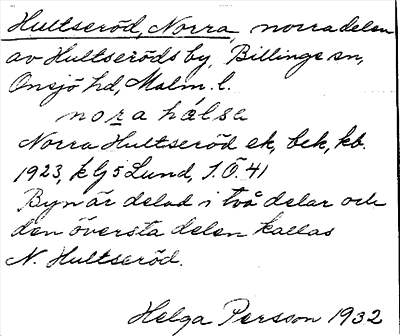 Hultseröd, Norra, norra delen
av Hultseröds by, Billinge sn,
Onsjö hd, Malm. l.
nora hálsa
Norra Hultseröd ek, bek, kb.
1923, k G 5 Lund, S. Ö. 41
Byn är delad i två delar och
den översta delen kallas
N. Hultseröd.
Helga Persson 1932